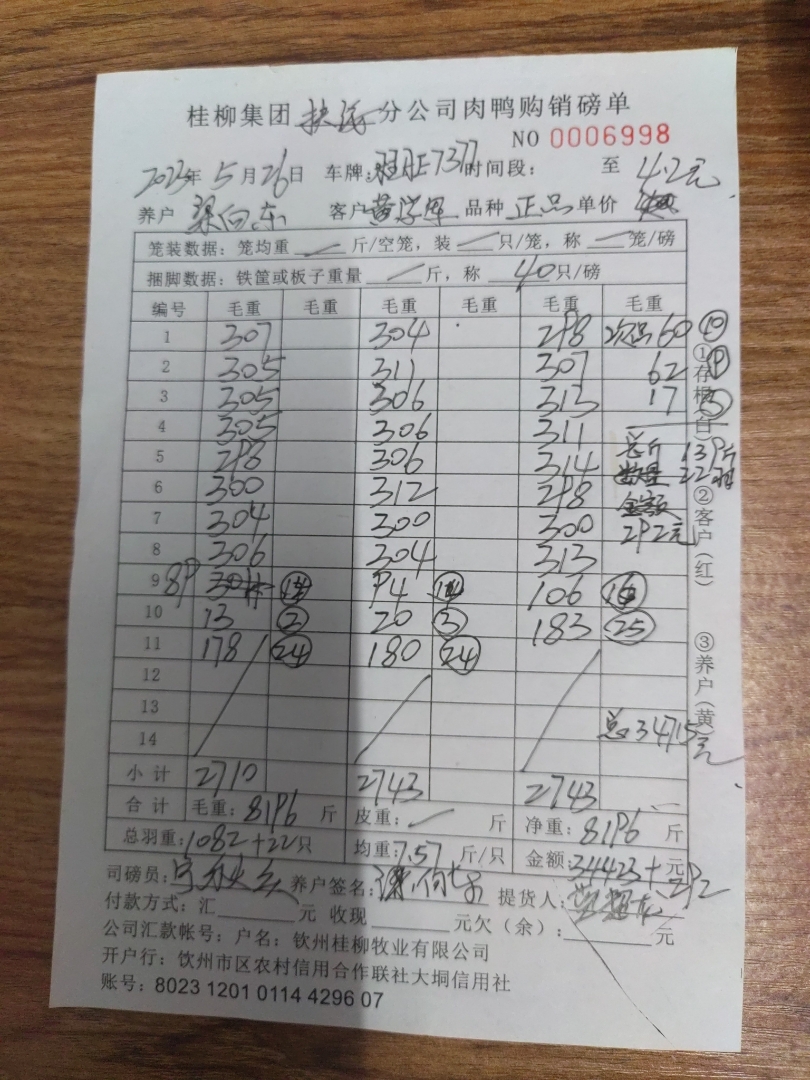 桂柳集团扶绥分公司肉鸭购销磅单
NO 0006998
2023年5月26日 车牌:旺旺7377时间段: 至 4.2元
养户 梁向东 客户 黄 品种 正品 单价
笼装数据: 笼均重 斤/空笼, 装 只/笼, 称 笼/磅
捆脚数据: 铁筐或板子重量 斤, 称 40只/磅
编号 毛重 毛重 毛重 毛重 毛重 毛重
1 307 304 298 次品60 ⑩
2 305 311 307 62
3 305 306 313 17
4 305 306 311
5 298 306 314 总斤 139斤
6 300 312 298 数量 22羽
7 304 300 300 金额 292元
8 306 304 313
9 89 94 106
10 13 ② 20 ③ 183 ㉕
11 178 ㉔ 180 ㉔
12
13
14 总:34715元
小计 2710 2743 2743
合计 毛重: 8196 斤 皮重: 斤 净重: 8196 斤
总羽重: 1082+22只 均重: 7.57 斤/只 金额: 34423+292元
司磅员: 养户签名: 梁向东 提货人:
付款方式: 汇 元 收现 元欠(余): 元
公司汇款帐号: 户名: 钦州桂柳牧业有限公司
开户行: 钦州市区农村信用合作联社大垌信用社
账号: 8023 1201 0114 4296 07
①存根(白) ②客户(红) ③养户(黄)